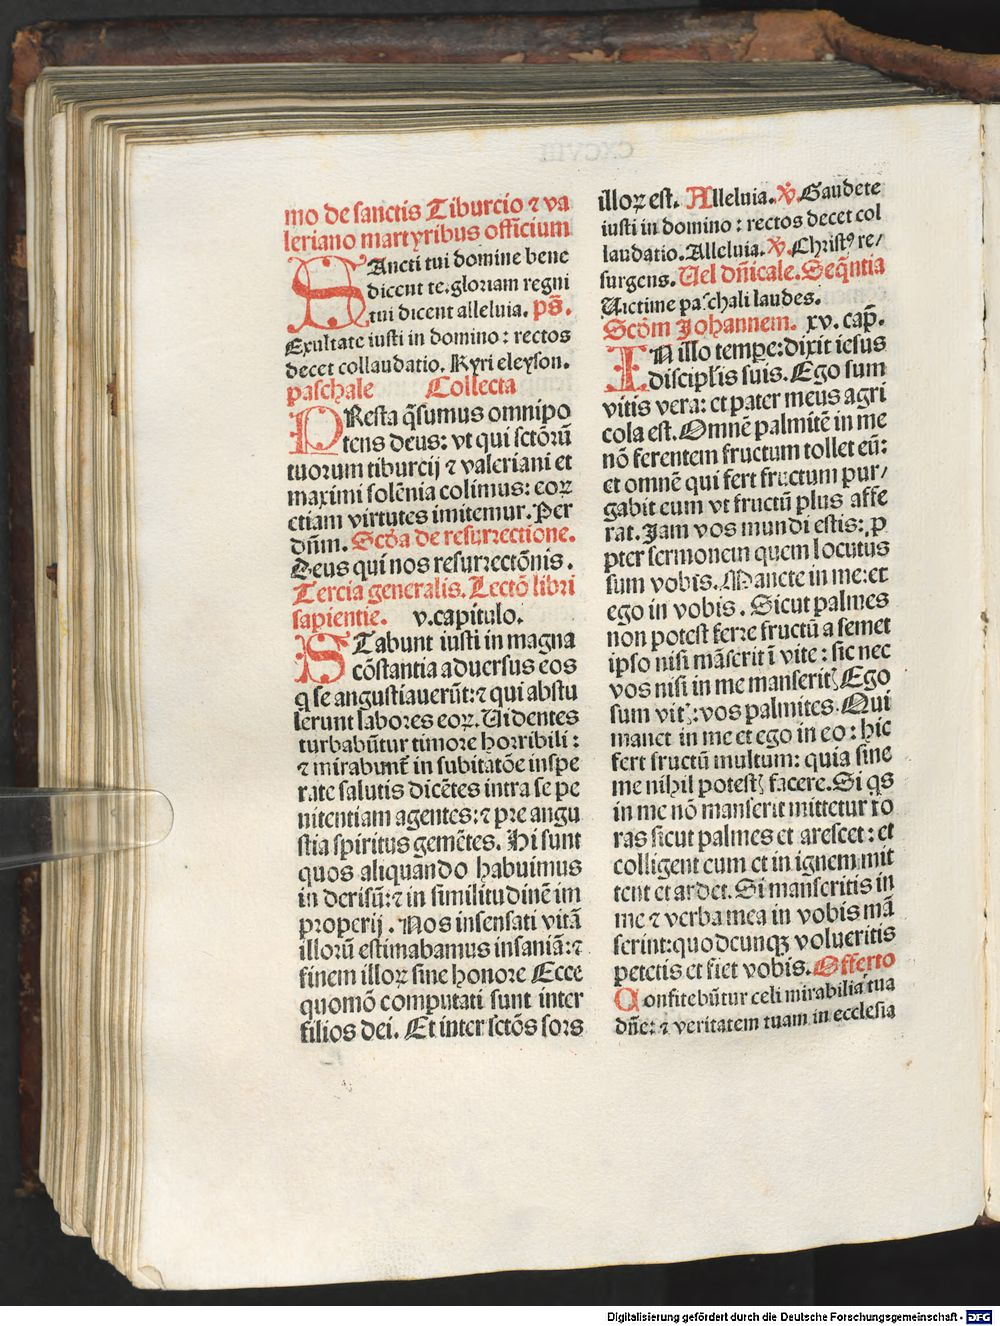 mo de sanctis Tiburcio ⁊ va
leriano martyribus officium
SAncti tui domine bene
dicent te.gloriam regni
tui dicent alleluia. ps̄.
Exultate iusti in domino: rectos
decet collaudatio. Kyri eleyson.
paschale Collecta
PResta q̄sumus omnipo
tens deus: vt qui sctōrū
tuorum tiburcij ⁊ valeriani et
maximi solēnia colimus: eoꝝ
etiam virtutes imitemur. Per
dn̄m. Scḋa de resurrectione.
Deus qui nos resurrectōnis.
Tercia generalis. Lectō libri
sapientie. v.capitulo.
STabunt iusti in magna
cōstantia aduersus eos
q se angustiauerūt:⁊ qui abstu
lerunt labores eoꝝ. Uidentes
turbabūtur timore horribili:
⁊ mirabunt̄ in subitatōe inspe
rate salutis dicētes intra se pe
nitentiam agentes:⁊ pre angu
stia spiritus gemētes. Hi sunt
quos aliquando habuimus
in derisū:⁊ in similitudinē im
properij. Nos insensati vitā
illorū estimabamus insaniā:⁊
finem illoꝝ sine honore Ecce
quomō computati sunt inter
filios dei. Et inter sctōs sors
illoꝝ est. Alleluia. ℣. Gaudete
iusti in domino: rectos decet col
laudatio. Alleluia. ℣. Christꝰ re/
surgens. Uel dn̄icale. Seq̄ntia
Uictime paschali laudes.
Scḋm Johannem. xv. cap̄.
IN illo tempe: dixit iesus
discipl̄is suis. Ego sum
vitis vera: et pater meus agri
cola est. Omnē palmitē in me
nō ferentem fructum tollet eū:
et omnē qui fert fructum pur/
gabit eum vt fructū plus affe
rat. Jam vos mundi estis: ꝓ
pter sermonem quem locutus
sum vobis. Manete in me: et
ego in vobis. Sicut palmes
non potest ferre fructū a semet
ipso nisi māserit ī vite: sic nec
vos nisi in me manseritꝭ Ego
sum vitꝭ: vos palmites. Qui
manet in me et ego in eo: hic
fert fructū multum: quia sine
me nihil potestꝭ facere. Si qs
in me nō manserit mittetur fo
ras sicut palmes et arescet: et
colligent eum et in ignem mit
tent et ardet. Si manseritis in
me ⁊ verba mea in vobis mā
serint: quodcunqꝫ volueritis
petetis et fiet vobis. Offerto
Confitebūtur celi mirabilia tua
dn̄e: ⁊ veritatem tuam in ecclesia
Digitalisierung gefördert durch die Deutsche Forschungsgemeinschaft - DFG